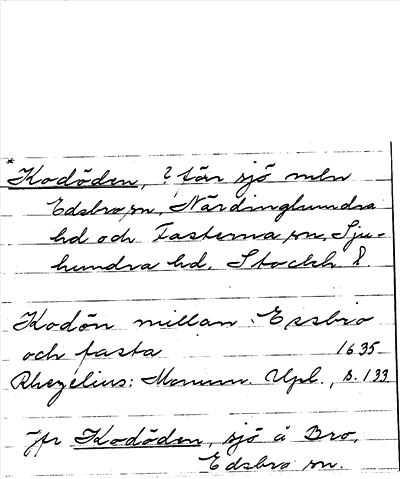 *Kodöden, ? för sjö mln
Edsbro sn, Närdinghundra
hd och Fasterna sn, Sju-
hundra hd, Stockh l.
Kodön millan Essbro
och fasta 1635
Rhezelius: Monum. Upl., s. 133
Jfr Kodöden, sjö å Bro,
Edsbro sn.